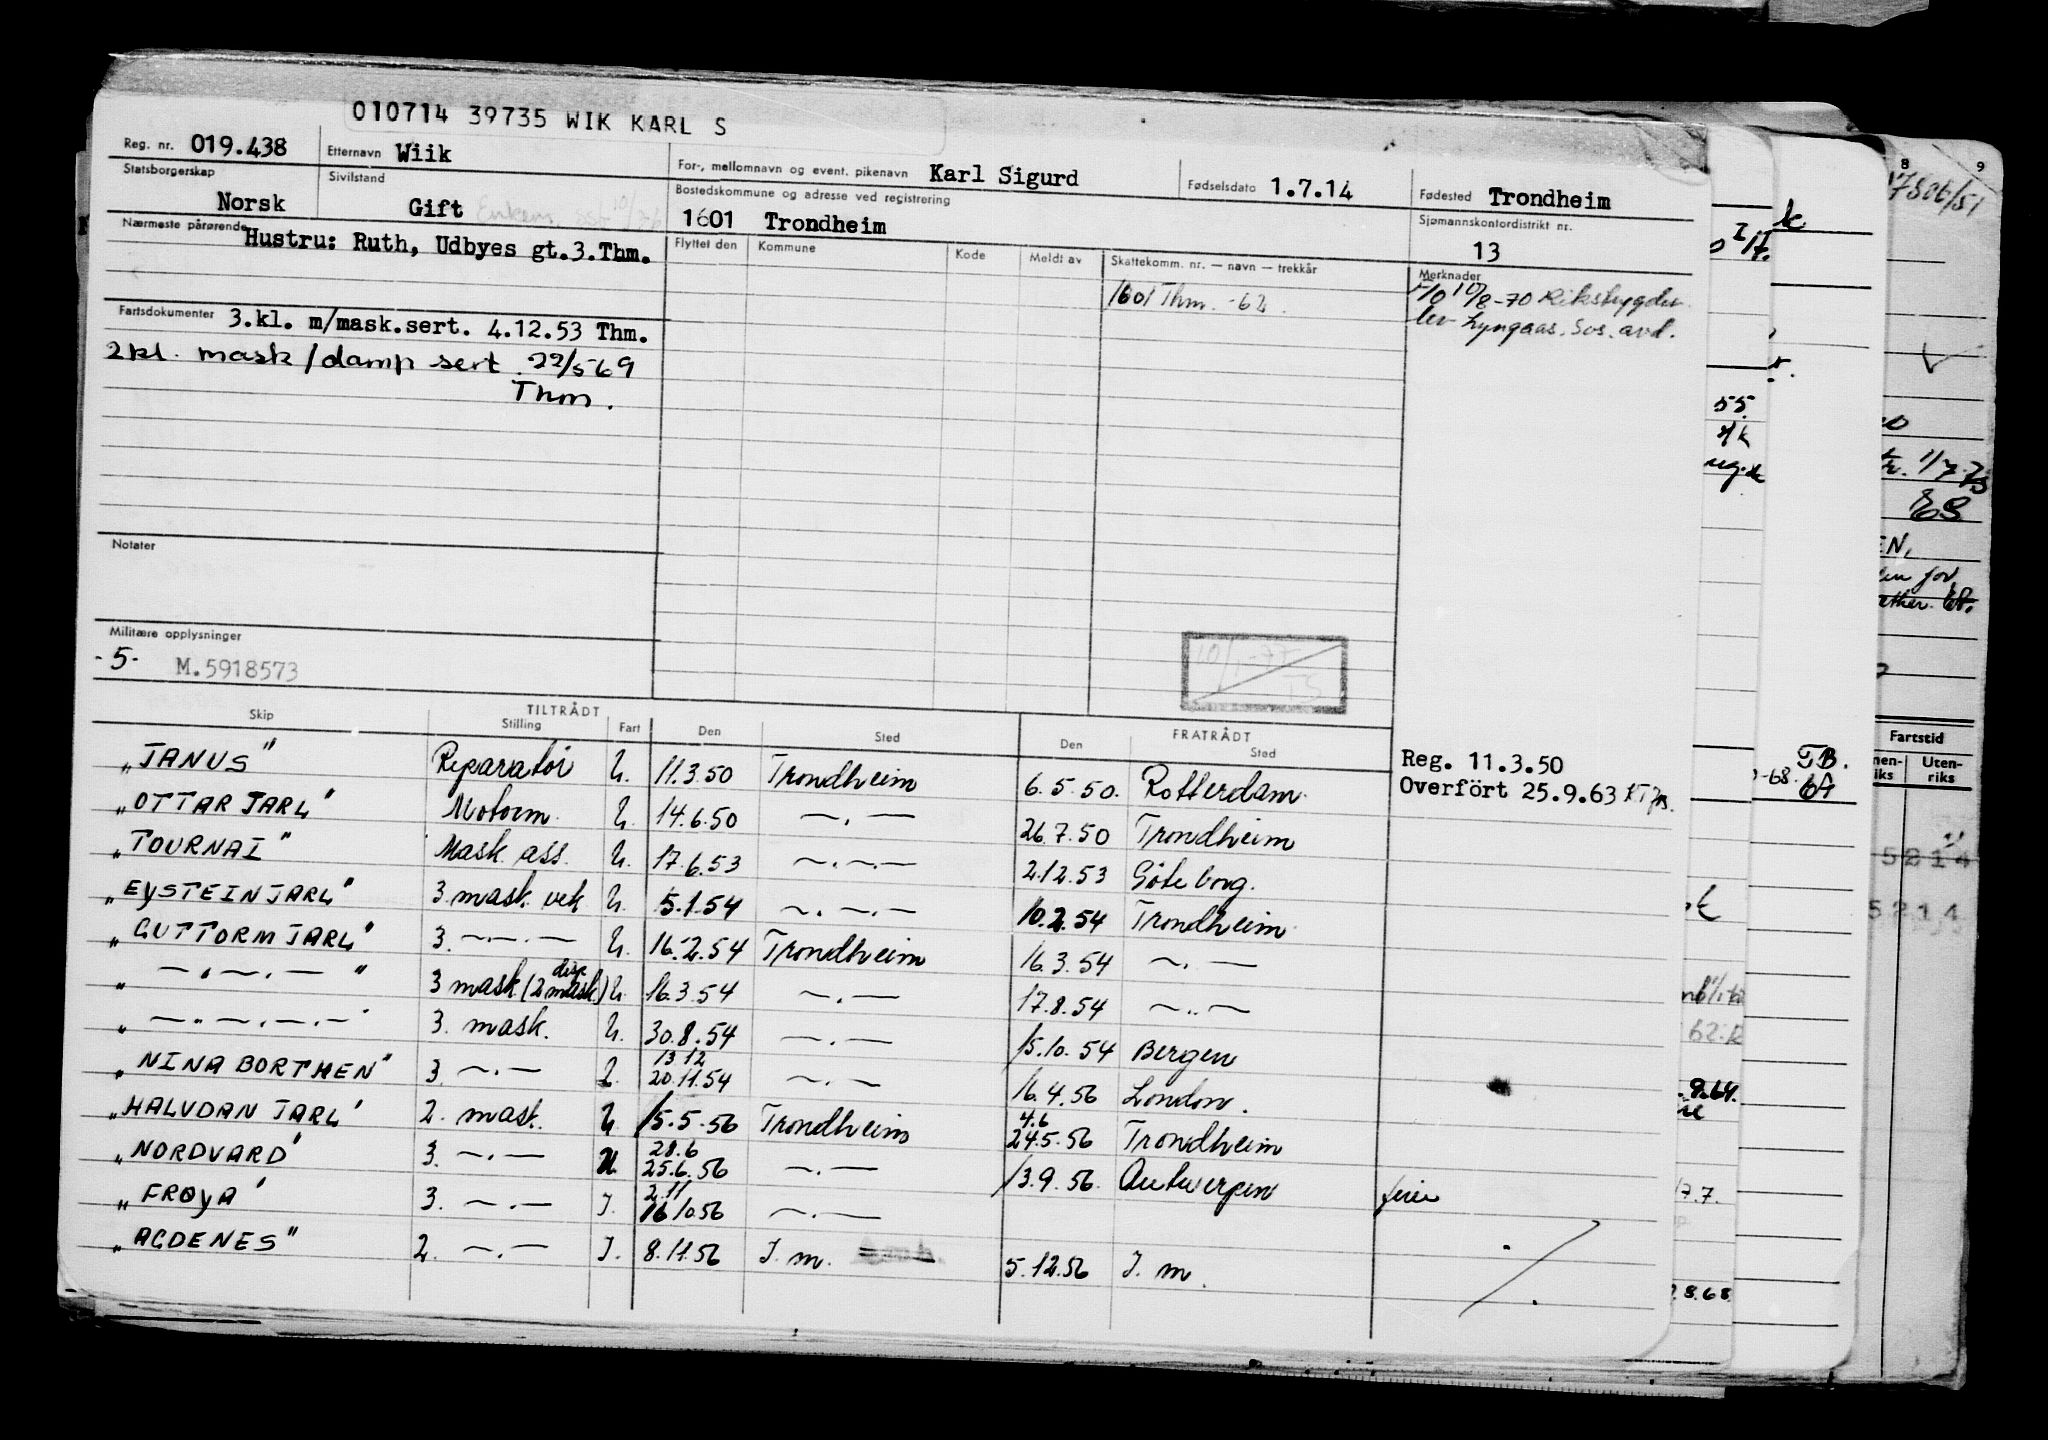 010714 39735 WIK KARL S
Reg. nr. 019.438 Etternavn Wiik For-, mellomnavn og event. pikenavn Karl Sigurd Fødselsdato 1.7.14 Fødested Trondheim
Statsborgerskap Norsk Sivilstand Gift Bostedskommune og adresse ved registrering 1601 Trondheim Sjømannskontordistrikt nr. 13
Nærmeste pårørende Hustru: Ruth, Udbyes gt.3.Thm.
Flyttet den Kommune Kode Meldt av Skattekomm. nr. — navn — trekkår Merknader
1601 Thm. -62. 10/8-70 Rikstrygdev.
lev Lyngaas. Sos. avd.
Fartsdokumenter 3.kl. m/mask.sert. 4.12.53 Thm.
2kl. mask/damp sert. 22/5 69
Thm.
Notater
Militære opplysninger
-5- M.5918573
TILTRÅDT FRATRÅDT
Skip Stilling Fart Den Sted Den Sted
Reg. 11.3.50
Overfört 25.9.63
"JANUS" Reparatör U. 11.3.50 Trondheim 6.5.50. Rotterdam
"OTTAR JARL" Motorm. U. 14.6.50 —.— 26.7.50 Trondheim
"TOURNAI" Mask. ass. U. 17.6.53 —.—.— 2.12.53 Göteborg.
"EYSTEIN JARL" 3. mask. vek U. 5.1.54 —.—.— 10.2.54 Trondheim
"GUTTORM JARL" 3. —.—.— U. 16.2.54 Trondheim 16.3.54 —.—
" —.—.— " 3 mask (2 mask disp.) U. 16.3.54 —.— 17.8.54 —..—
" —.—.—.— " 3. mask. U. 30.8.54 —.— 15.10.54 Bergen
"NINA BORTHEN" 3. —.— U. 13 12 20.11.54 —.— 16.4.56 London.
"HALVDAN JARL" 2. mask. U. 15.5.56 Trondheim 4.6 24.5.56 Trondheim
"NORDVARD" 3. —.— U. 28.6 25.6.56 —.— 13.9.56. Antwerpen ferie
"FRØYA" 3. —.— I. 2.11 16.10.56 —.—
"AGDENES" 2. —.— I. 8.11.56 I. m. 5.12.56 I. m.
8 9
17506/51
55.
EN,
Fartstid
Uten-
riks
5214
5214
T.B.
-68.
8.64.
17.7.
8.68.